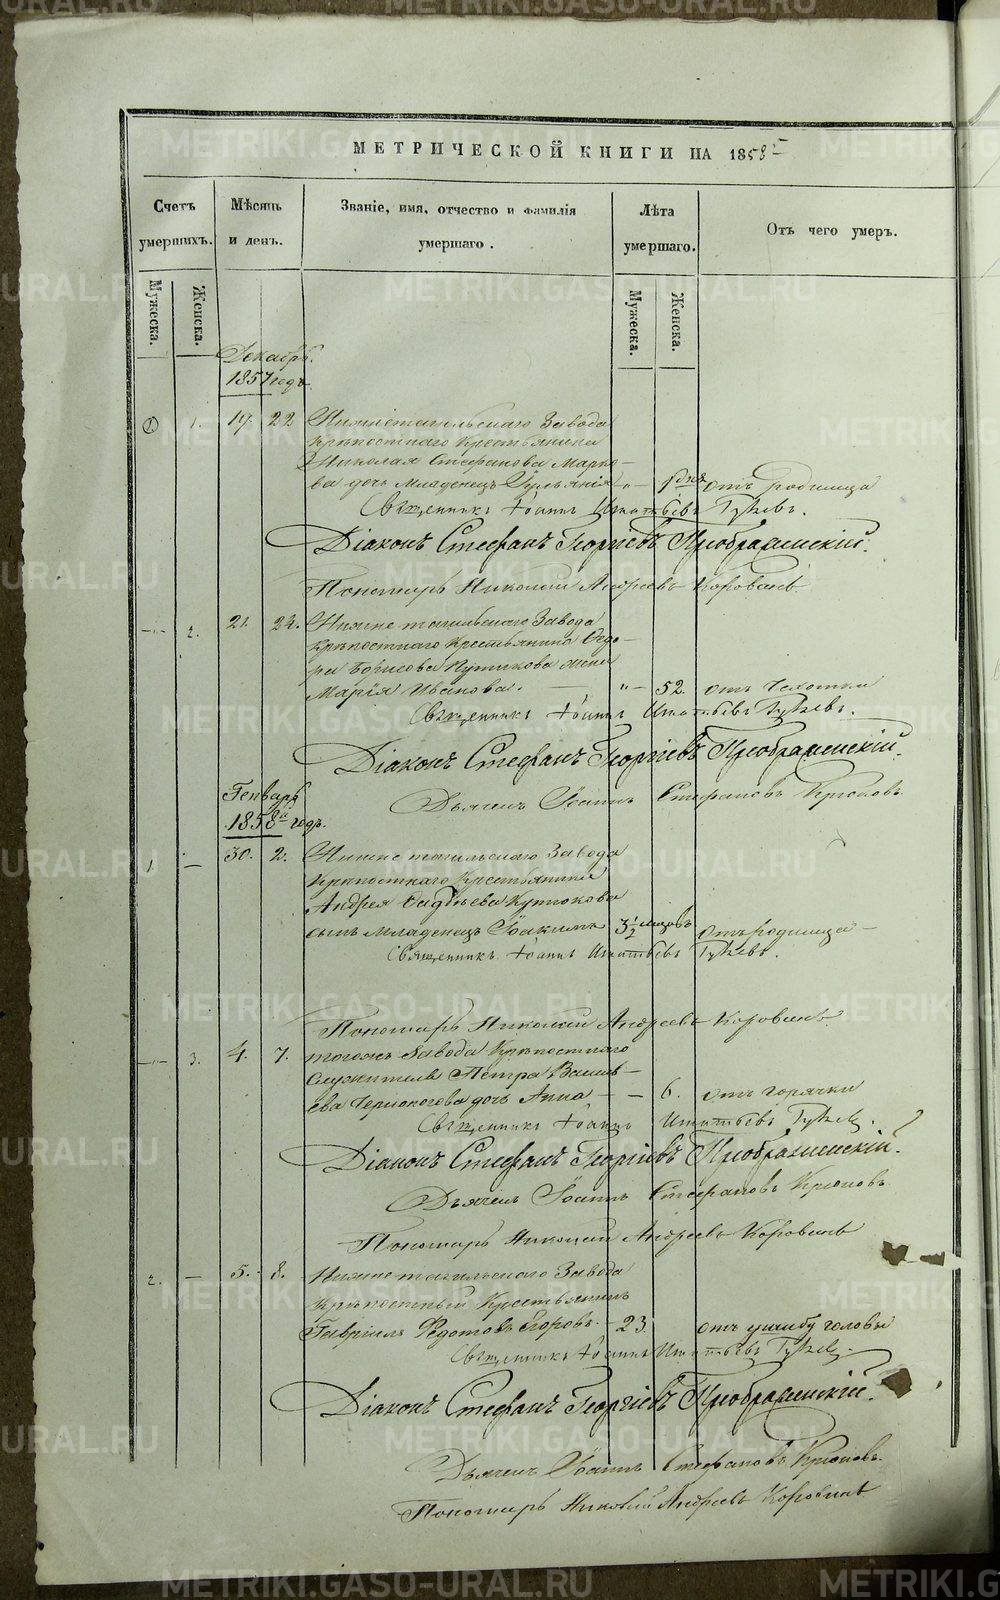 МЕТРИЧЕСКОЙ КНИГИ НА 1858й
Счетъ умершихъ.
Мѣсяцъ и день.
Званіе, имя, отчество и фамилія умершаго.
Лѣта умершаго.
Отъ чего умеръ.
Мужеска.
Женска.
Мужеска.
Женска.
Декабрь
1857 годъ
1. 19. 22 Нижнетагильскаго Завода
крѣпостнаго Крестьянина
Николая Стефанова Марко-
ва дочь Младенецъ Ульянія " — дня отъ родимца
Священникъ Іоаннъ Игнатьевъ
Діаконъ Стефанъ Георгіевъ Преображенскій.
Пономарь Николай Андреевъ Коровинъ
— 2. 21. 24. Нижнетагильскаго Завода
крѣпостнаго Крестьянина Ѳедо-
ра Борисова жена
Марія Иванова. — " — 52. отъ Чахотки
Священникъ Іоаннъ Игнатьевъ
Діаконъ Стефанъ Георгіевъ Преображенскій.
Дьячекъ Іоаннъ Стефановъ Крюковъ.
Генварь
1858й годъ.
1 — 30. 2. Нижнетагильскаго Завода
Крѣпостнаго Крестьянина
Андрея
сынъ Младенецъ Іоакимъ 3 1/2 отъ родимца —
Священникъ Іоаннъ Игнатьевъ
Пономарь Николай Андреевъ Коровинъ
— 3. 4. 7. тогожъ Завода Крѣпостнаго
Служителя Петра Василь-
ева дочь Анна — — 6. отъ горячки
Священникъ Іоаннъ Игнатьевъ
Діаконъ Стефанъ Георгіевъ Преображенскій.
Дьячекъ Іоаннъ Стефановъ Крюковъ
Пономарь Николай Андреевъ Коровинъ
2. — 5. 8. Нижнетагильскаго Завода
Крѣпостный Крестьянинъ
Гавріилъ Ѳедотовъ Егоровъ — 23. отъ ушибу головы
Священникъ Іоаннъ Игнатьевъ
Діаконъ Стефанъ Георгіевъ Преображенскій.
Дьячекъ Іоаннъ Стефановъ Крюковъ.
Пономарь Николай Андреевъ Коровинъ
METRIKI.GASO-URAL.RU